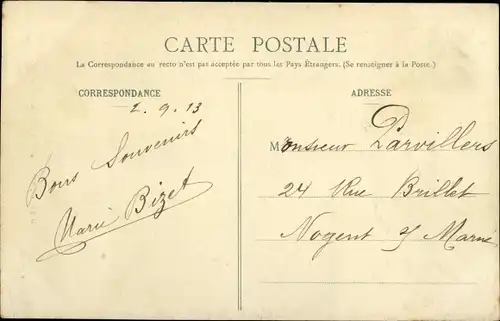 CARTE POSTALE
La Correspondance au recto n'est pas acceptée par tous les Pays Étrangers. (Se renseigner à la Poste.)
CORRESPONDANCE
2. 9. 13
Bons Souvenirs
Marie Bizet
ADRESSE
Monsieur Parvillers
24 Rue Brillet
Nogent s/ Marne